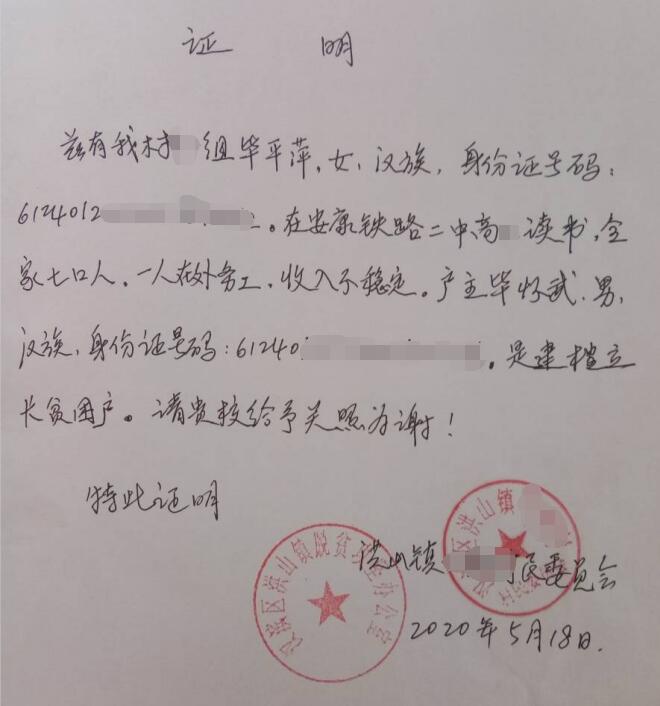 证 明
兹有我村 组毕平萍,女,汉族,身份证号码:
6124012 。在安康铁路二中高 读书,全
家七口人,一人在外务工,收入不稳定。户主毕怀武,男,
汉族,身份证号码:61240 。是建档立
卡贫困户。请贵校给予关照为谢!
特此证明
洪山镇 民委员会
2020年5月18日.
汉滨区洪山镇脱贫 办公室
区洪山镇